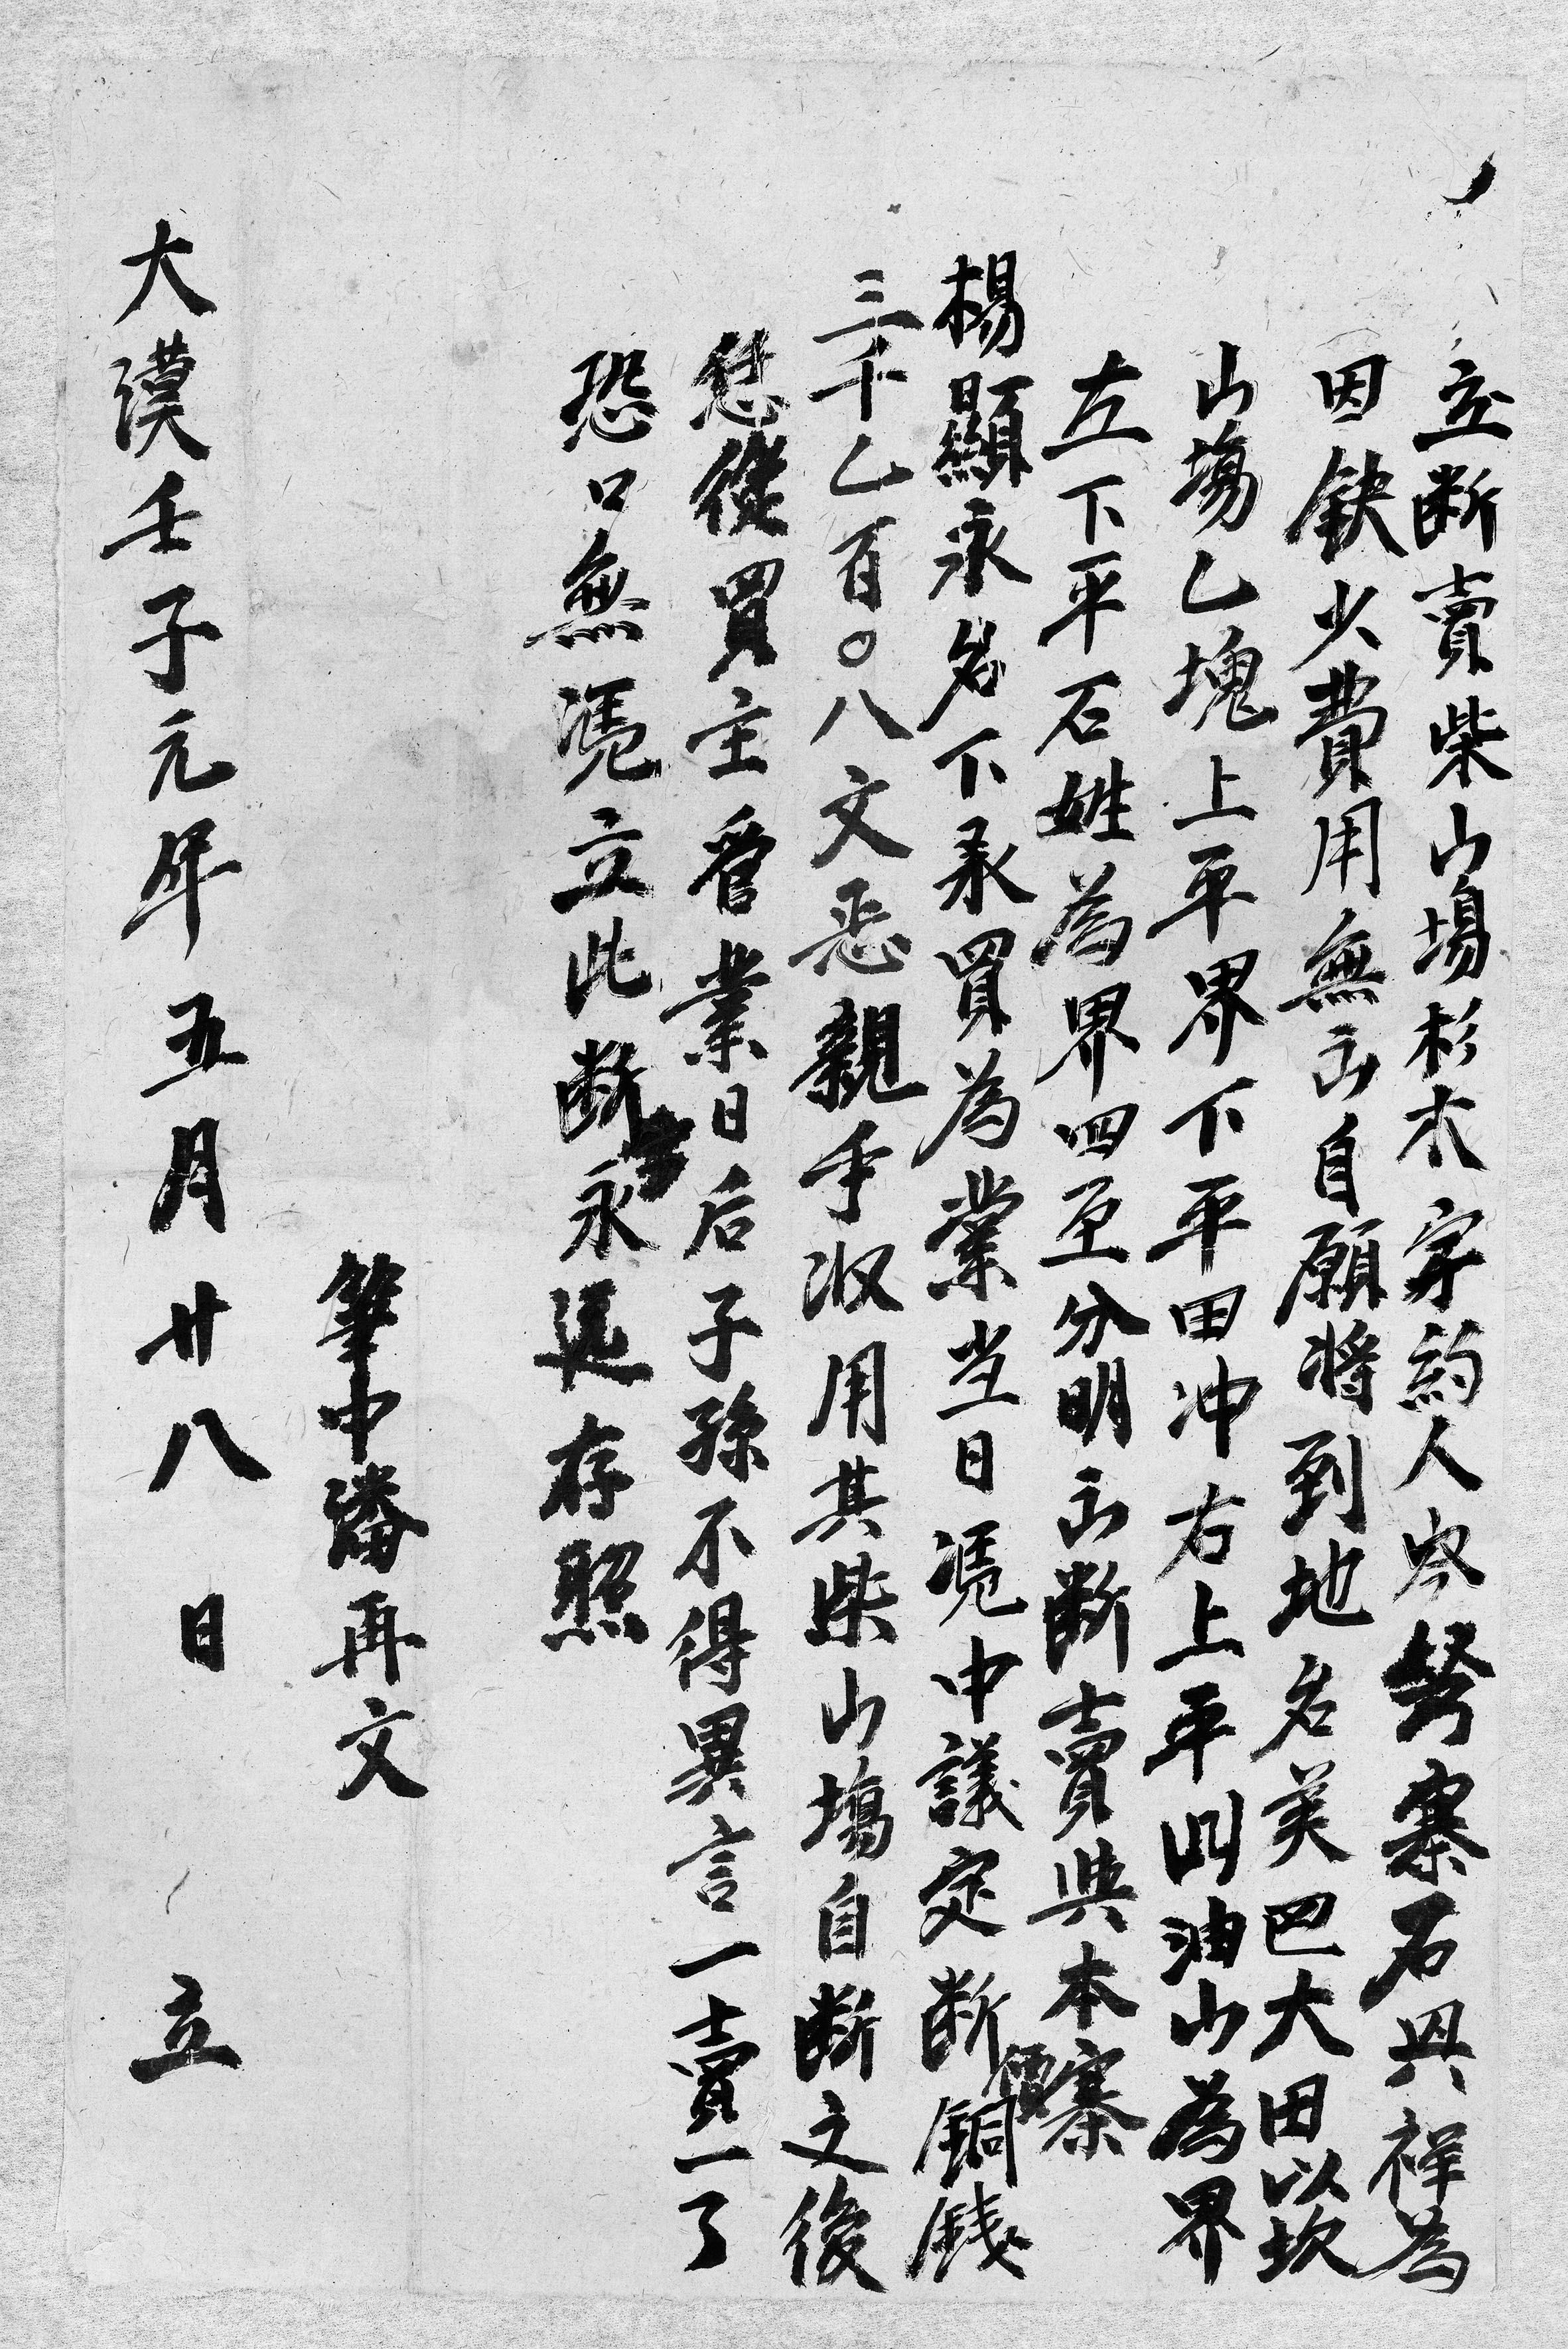 立断賣柴山塲杉木字約人岑弩寨石興祥為
因缺少費用無出自願將到地名美巴大田以坎
山塲乙塊上平界下平田冲右上平凹油山為界
左下平石姓為界四至分明出断賣與本寨
楊顯永名下承買為業當日凴中議定断價銅錢
三千乙百〇八文恶親手収用其柴山塲自断之後
恁從買主管業日后子孫不得異言一賣一了
恐口無凴立此断字永遠存照
筆中潘再文
大漠壬子元年五月廿八日立